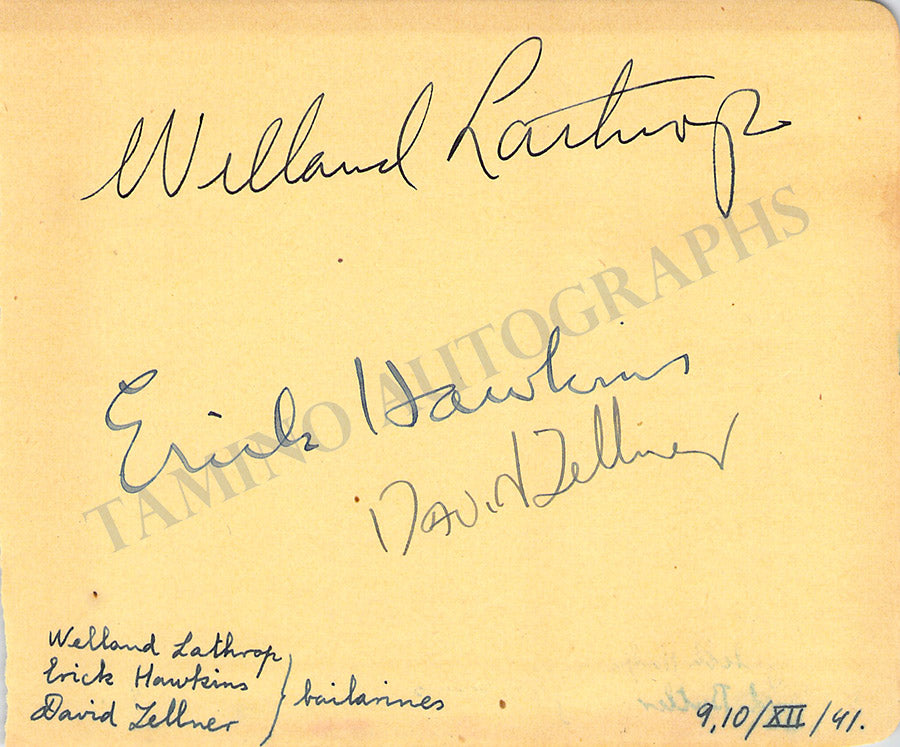 Welland Lathrop
Erick Hawkins
David Zellner
TAMINO AUTOGRAPHS
Welland Lathrop
Erick Hawkins
David Zellner
} bailarines
9,10/XII/41.